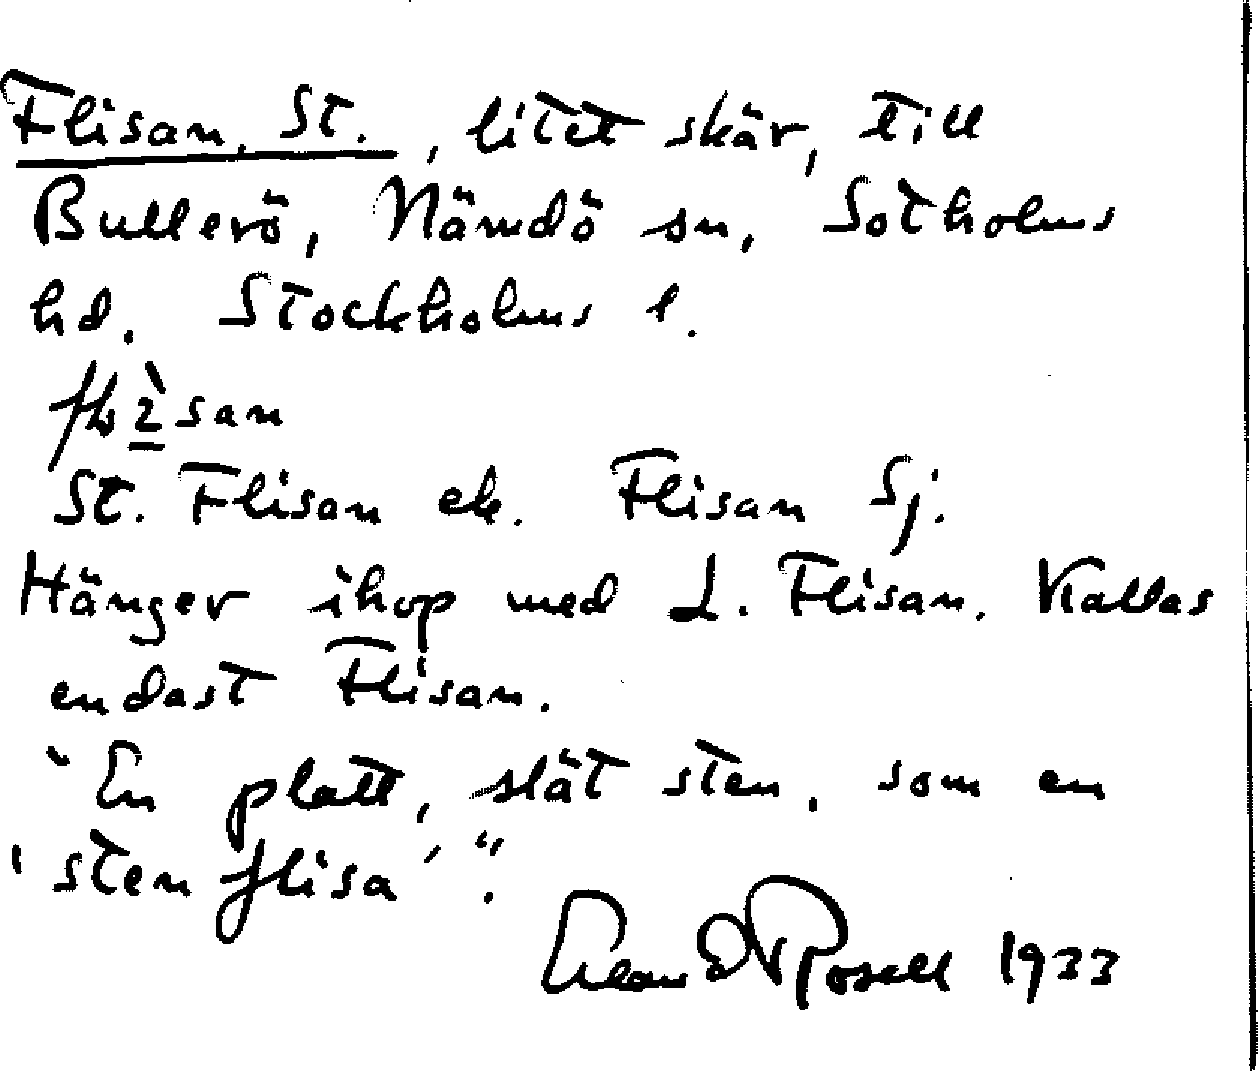 Flisan, St., litet skär, till
Bullerö, Nämdö sn, Sotholms
hd. Stockholms l.
St. Flisan ek. Flisan Sj.
Hänger ihop med L. Flisan. Kallas
endast Flisan.
"En platt, slät sten, som en
'sten flisa'".
Rosell 1933